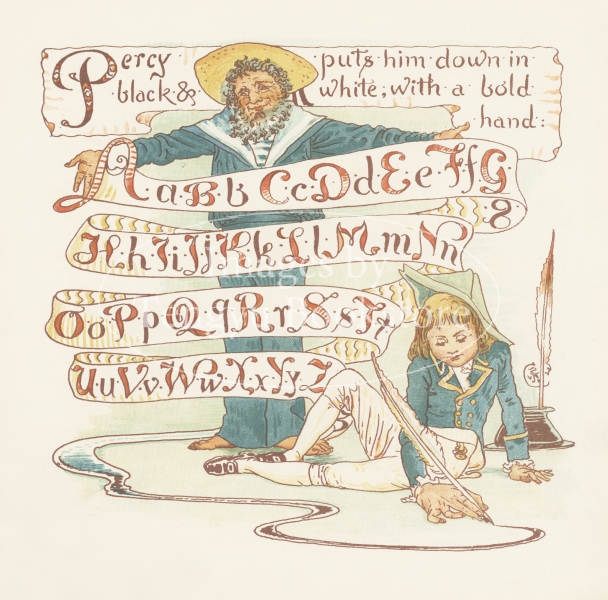 Percy puts him down in
black & white, with a bold
hand:
A a B b C c D d E e F f G
g
H h I i J j K k L l M m N n
O o P p Q q R r S s T t
U u V v W w X x Y y Z
Images by